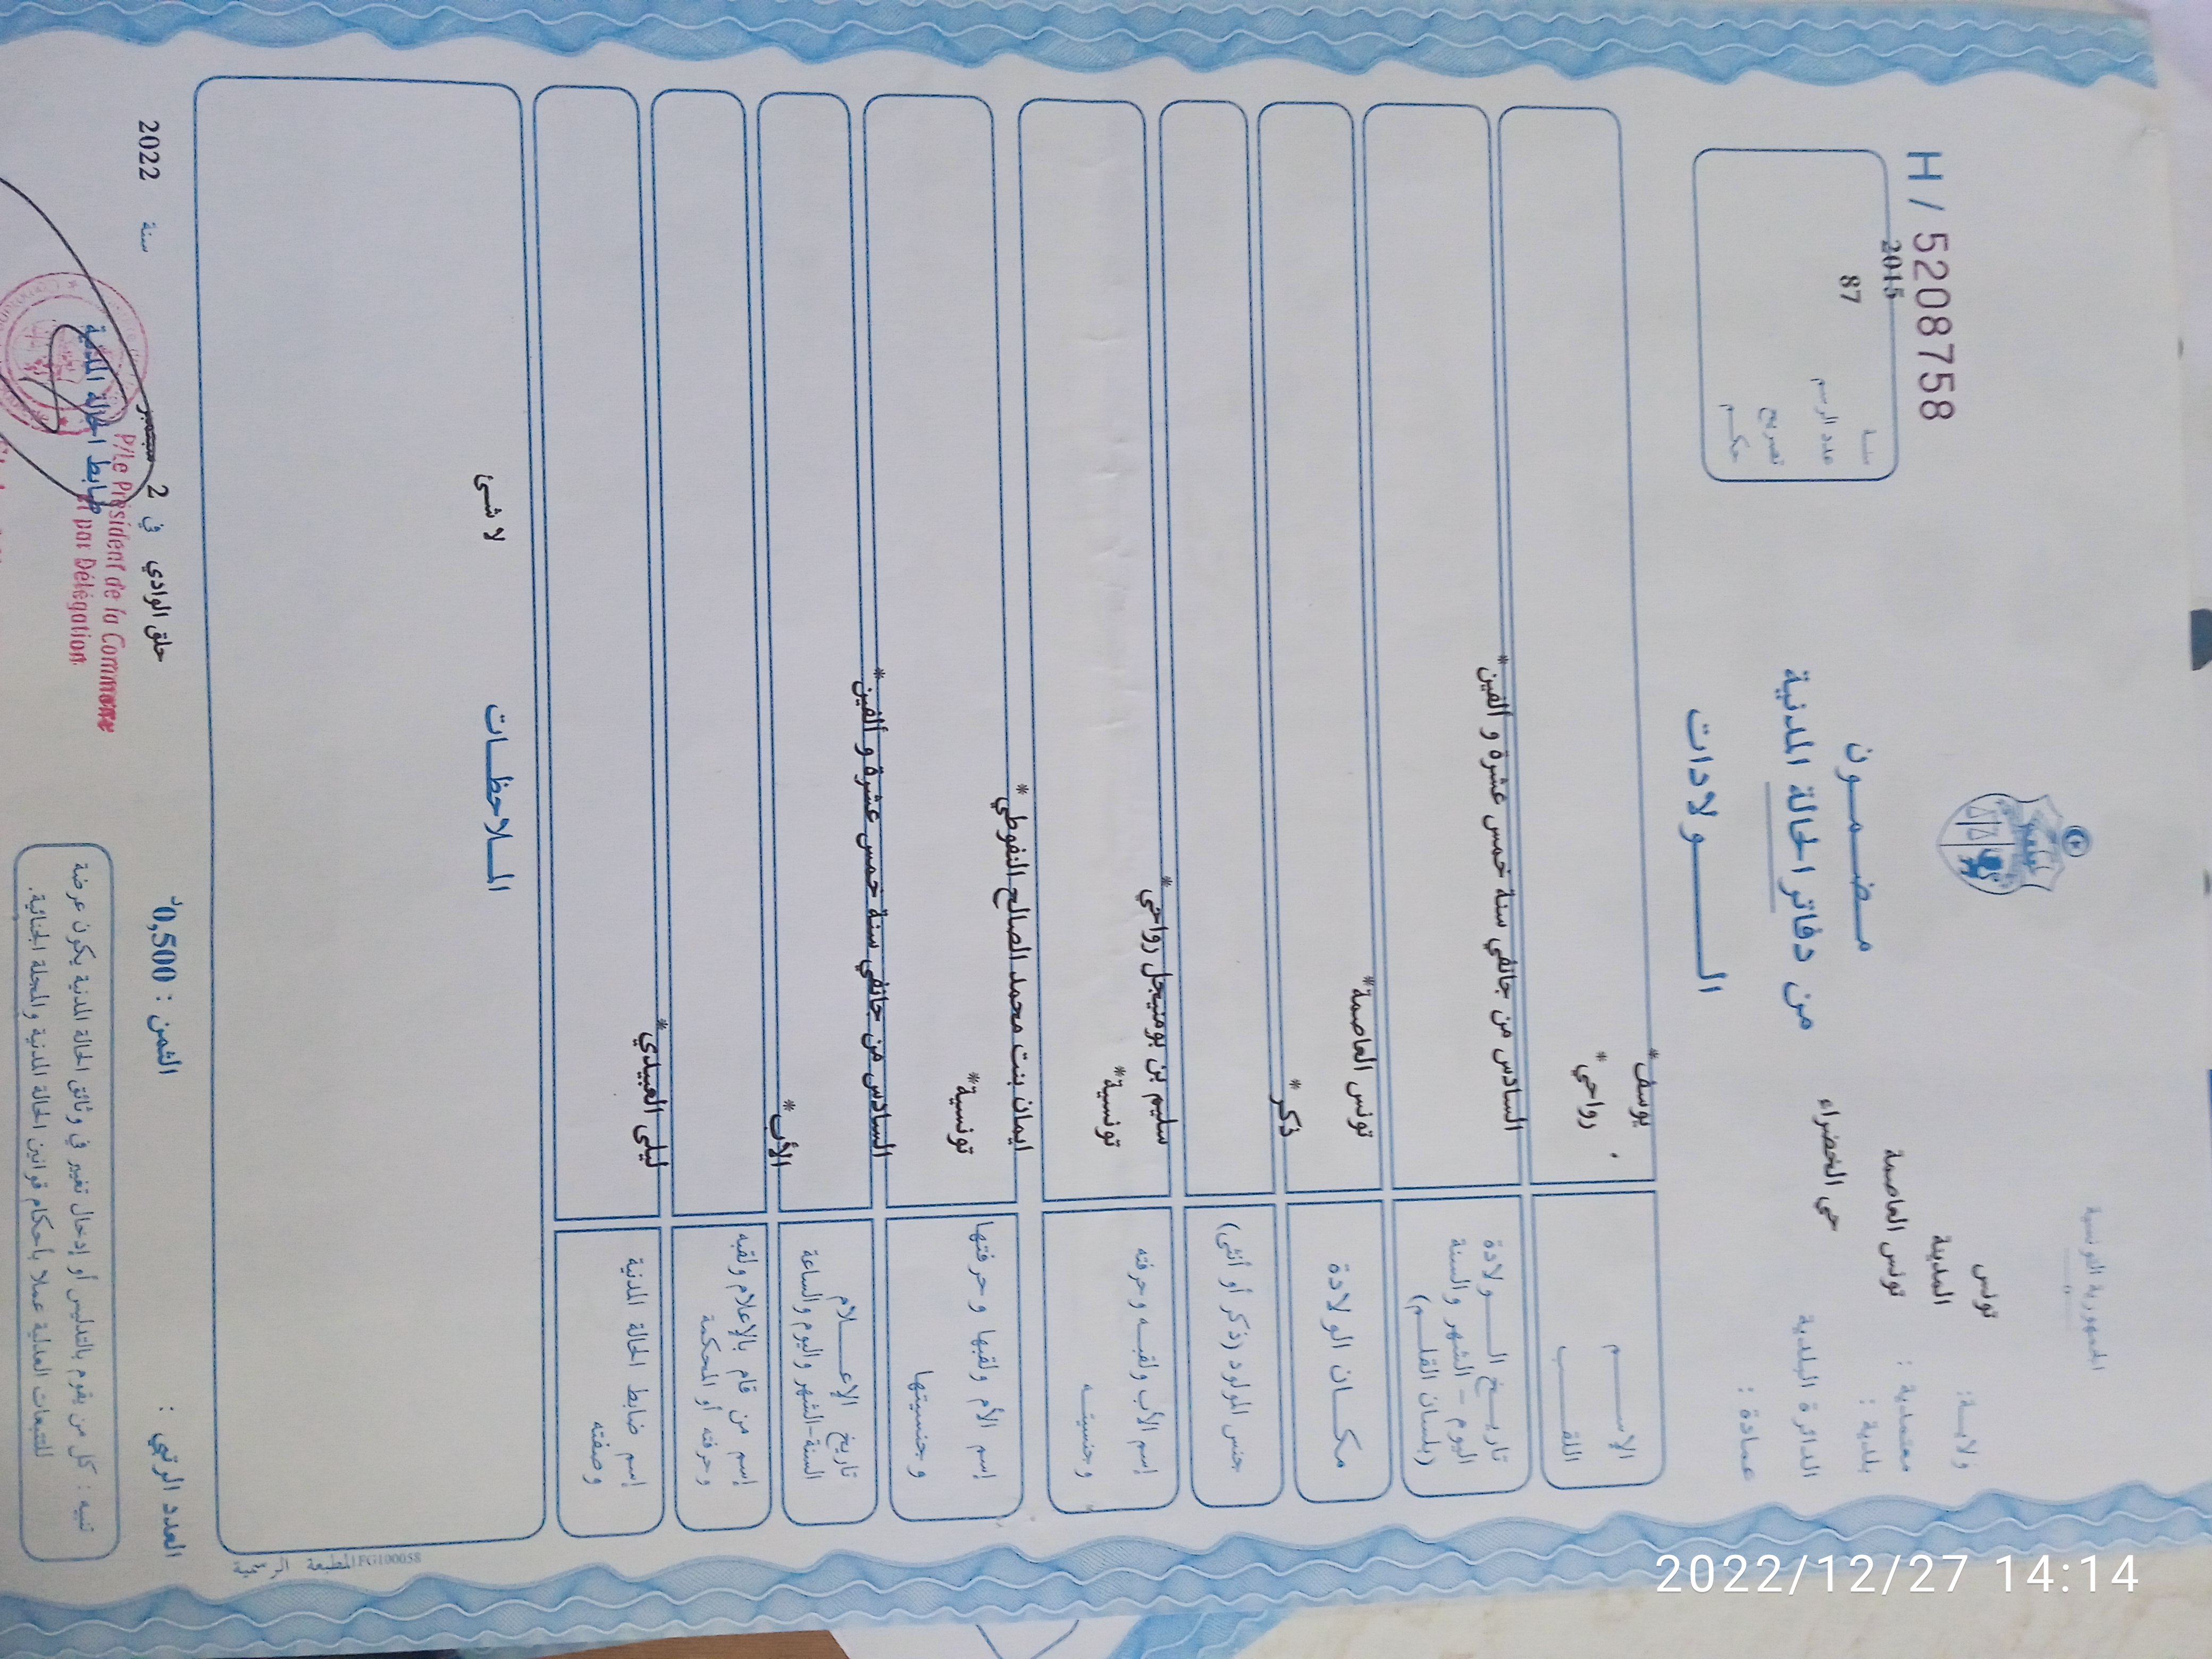 الجمهورية التونسية
ولاية: تونس
معتمدية : المدينة
بلدية : تونس العاصمة
الدائرة البلدية حي الخضراء
عمادة :
H / 5208758
سنة 2015
عدد الرسم 87
تصريح
حكم
مضمون
من دفاتر الحالة المدنية
الولادات
الإسم يوسف*
اللقب رواحي*
تاريخ الولادة
اليوم - الشهر والسنة
(بلسان القلم)
السادس من جانفي سنة خمس عشرة و ألفين*
مكان الولادة تونس العاصمة*
جنس المولود (ذكر أو أنثى) ذكر*
إسم الأب ولقبه وحرفته سليم بن بومنيجل رواحي*
وجنسيته تونسية*
إسم الأم ولقبها وحرفتها ايمان بنت محمد الصالح النفوطي*
وجنسيتها تونسية*
تاريخ الإعلام السادس من جانفي سنة خمس عشرة و ألفين*
السنة-الشهر واليوم والساعة
إسم من قام بالإعلام ولقبه الأب*
وحرفته أو المحكمة
إسم ضابط الحالة المدنية ليلى العبيدي*
وصفته
الملاحظات
لا شئ
المطبعة الرسمية FG100058
العدد الرتبي : الثمن : 0,500د حلق الوادي في 2 سبتمبر سنة 2022
ضابط الحالة المدنية
P/Le Président de la Commune
et par Délégation
تنبيه : كل من يقوم بالتدليس أو إدخال تغيير في وثائق الحالة المدنية يكون عرضة
للتتبعات العدلية عملا بأحكام قوانين الحالة المدنية والمجلة الجنائية.
2022/12/27 14:14